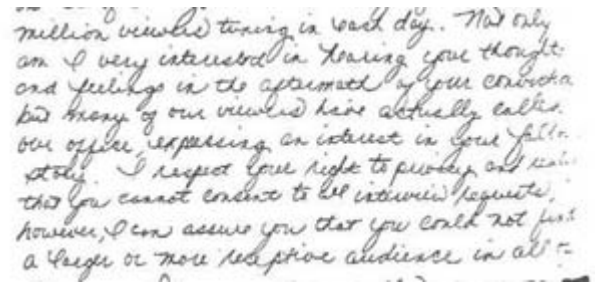 million viewers tuning in each day. Not only
am I very interested in hearing your thought
and feelings in the aftermath of your convictio
but many of our viewers have actually called
our office, expressing an interest in your
story. I respect your right to privacy and
that you cannot consent to all interview requests,
however, I can assure you that you could not find
a larger or more receptive audience in all